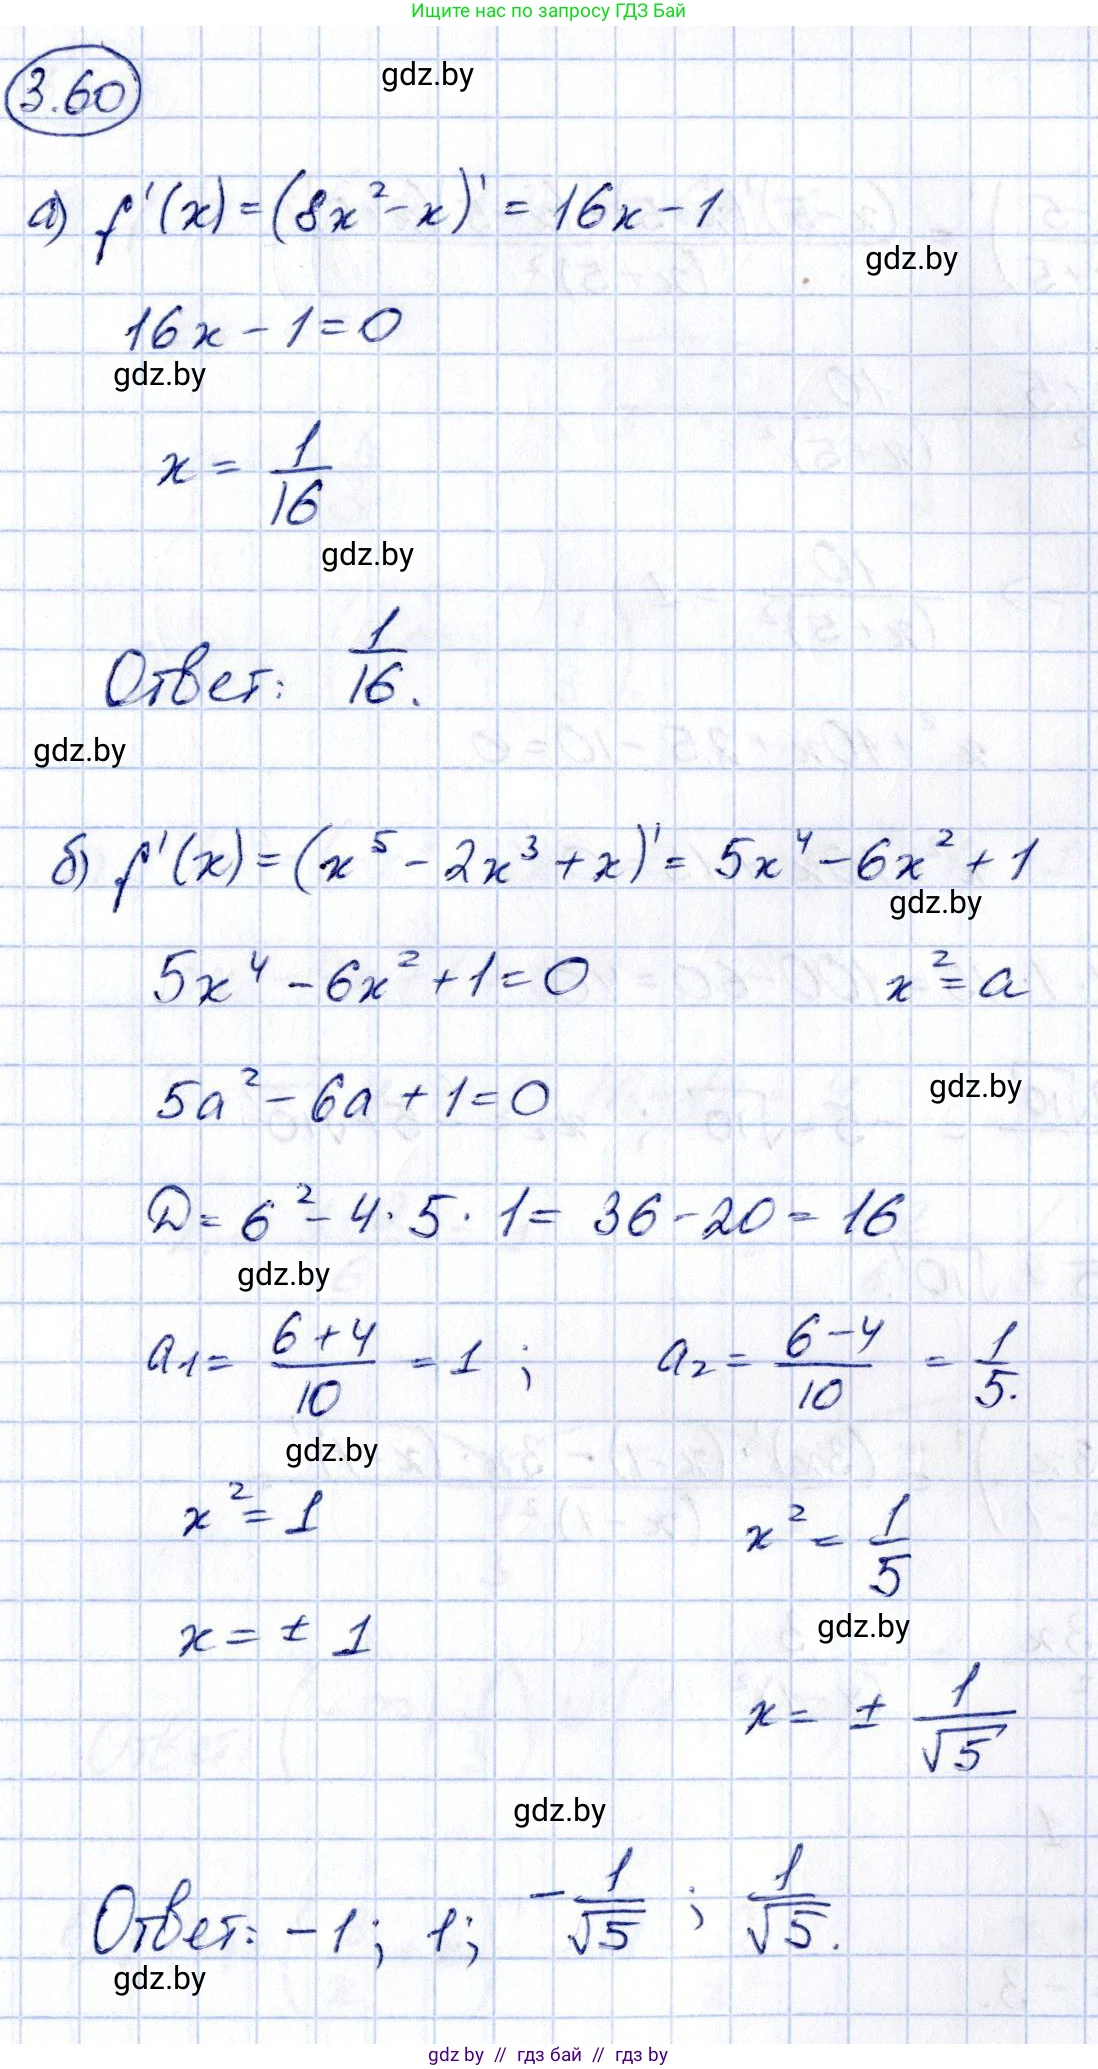 Ищите нас по запросу ГДЗ Бай
3.60
gdz.by
а) f'(x) = (8x² - x)' = 16x - 1
gdz.by
16x - 1 = 0
gdz.by
x = 1/16
gdz.by
Ответ: 1/16.
gdz.by
б) f'(x) = (x⁵ - 2x³ + x)' = 5x⁴ - 6x² + 1
gdz.by
5x⁴ - 6x² + 1 = 0 x² = a
5a² - 6a + 1 = 0
gdz.by
D = 6² - 4 · 5 · 1 = 36 - 20 = 16
gdz.by
a₁ = (6 + 4)/10 = 1 ; a₂ = (6 - 4)/10 = 1/5.
gdz.by
x² = 1 x² = 1/5
gdz.by
x = ± 1
x = ± 1/√5
gdz.by
Ответ: -1; 1; -1/√5 ; 1/√5.
gdz.by
gdz by // гдз бай // гдз by